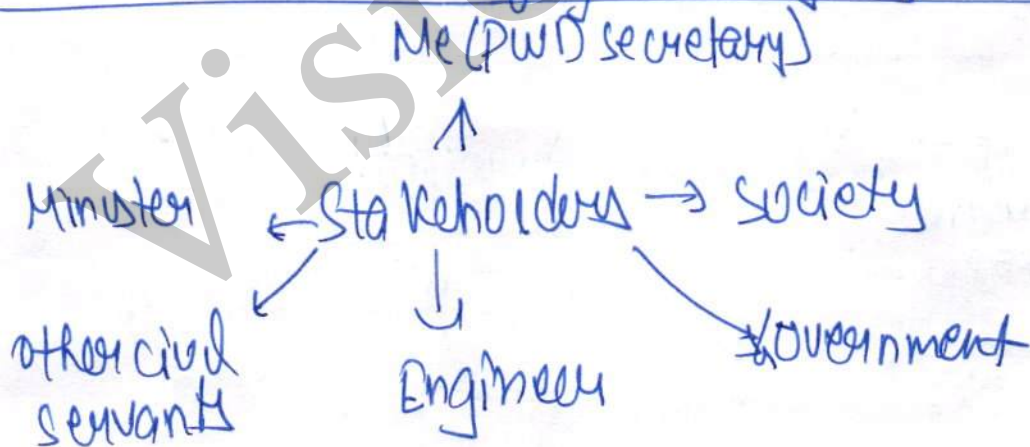 Me (PWD secretary)
Minister ← Stakeholders → society
other civil servants
Engineer
Government
Visio